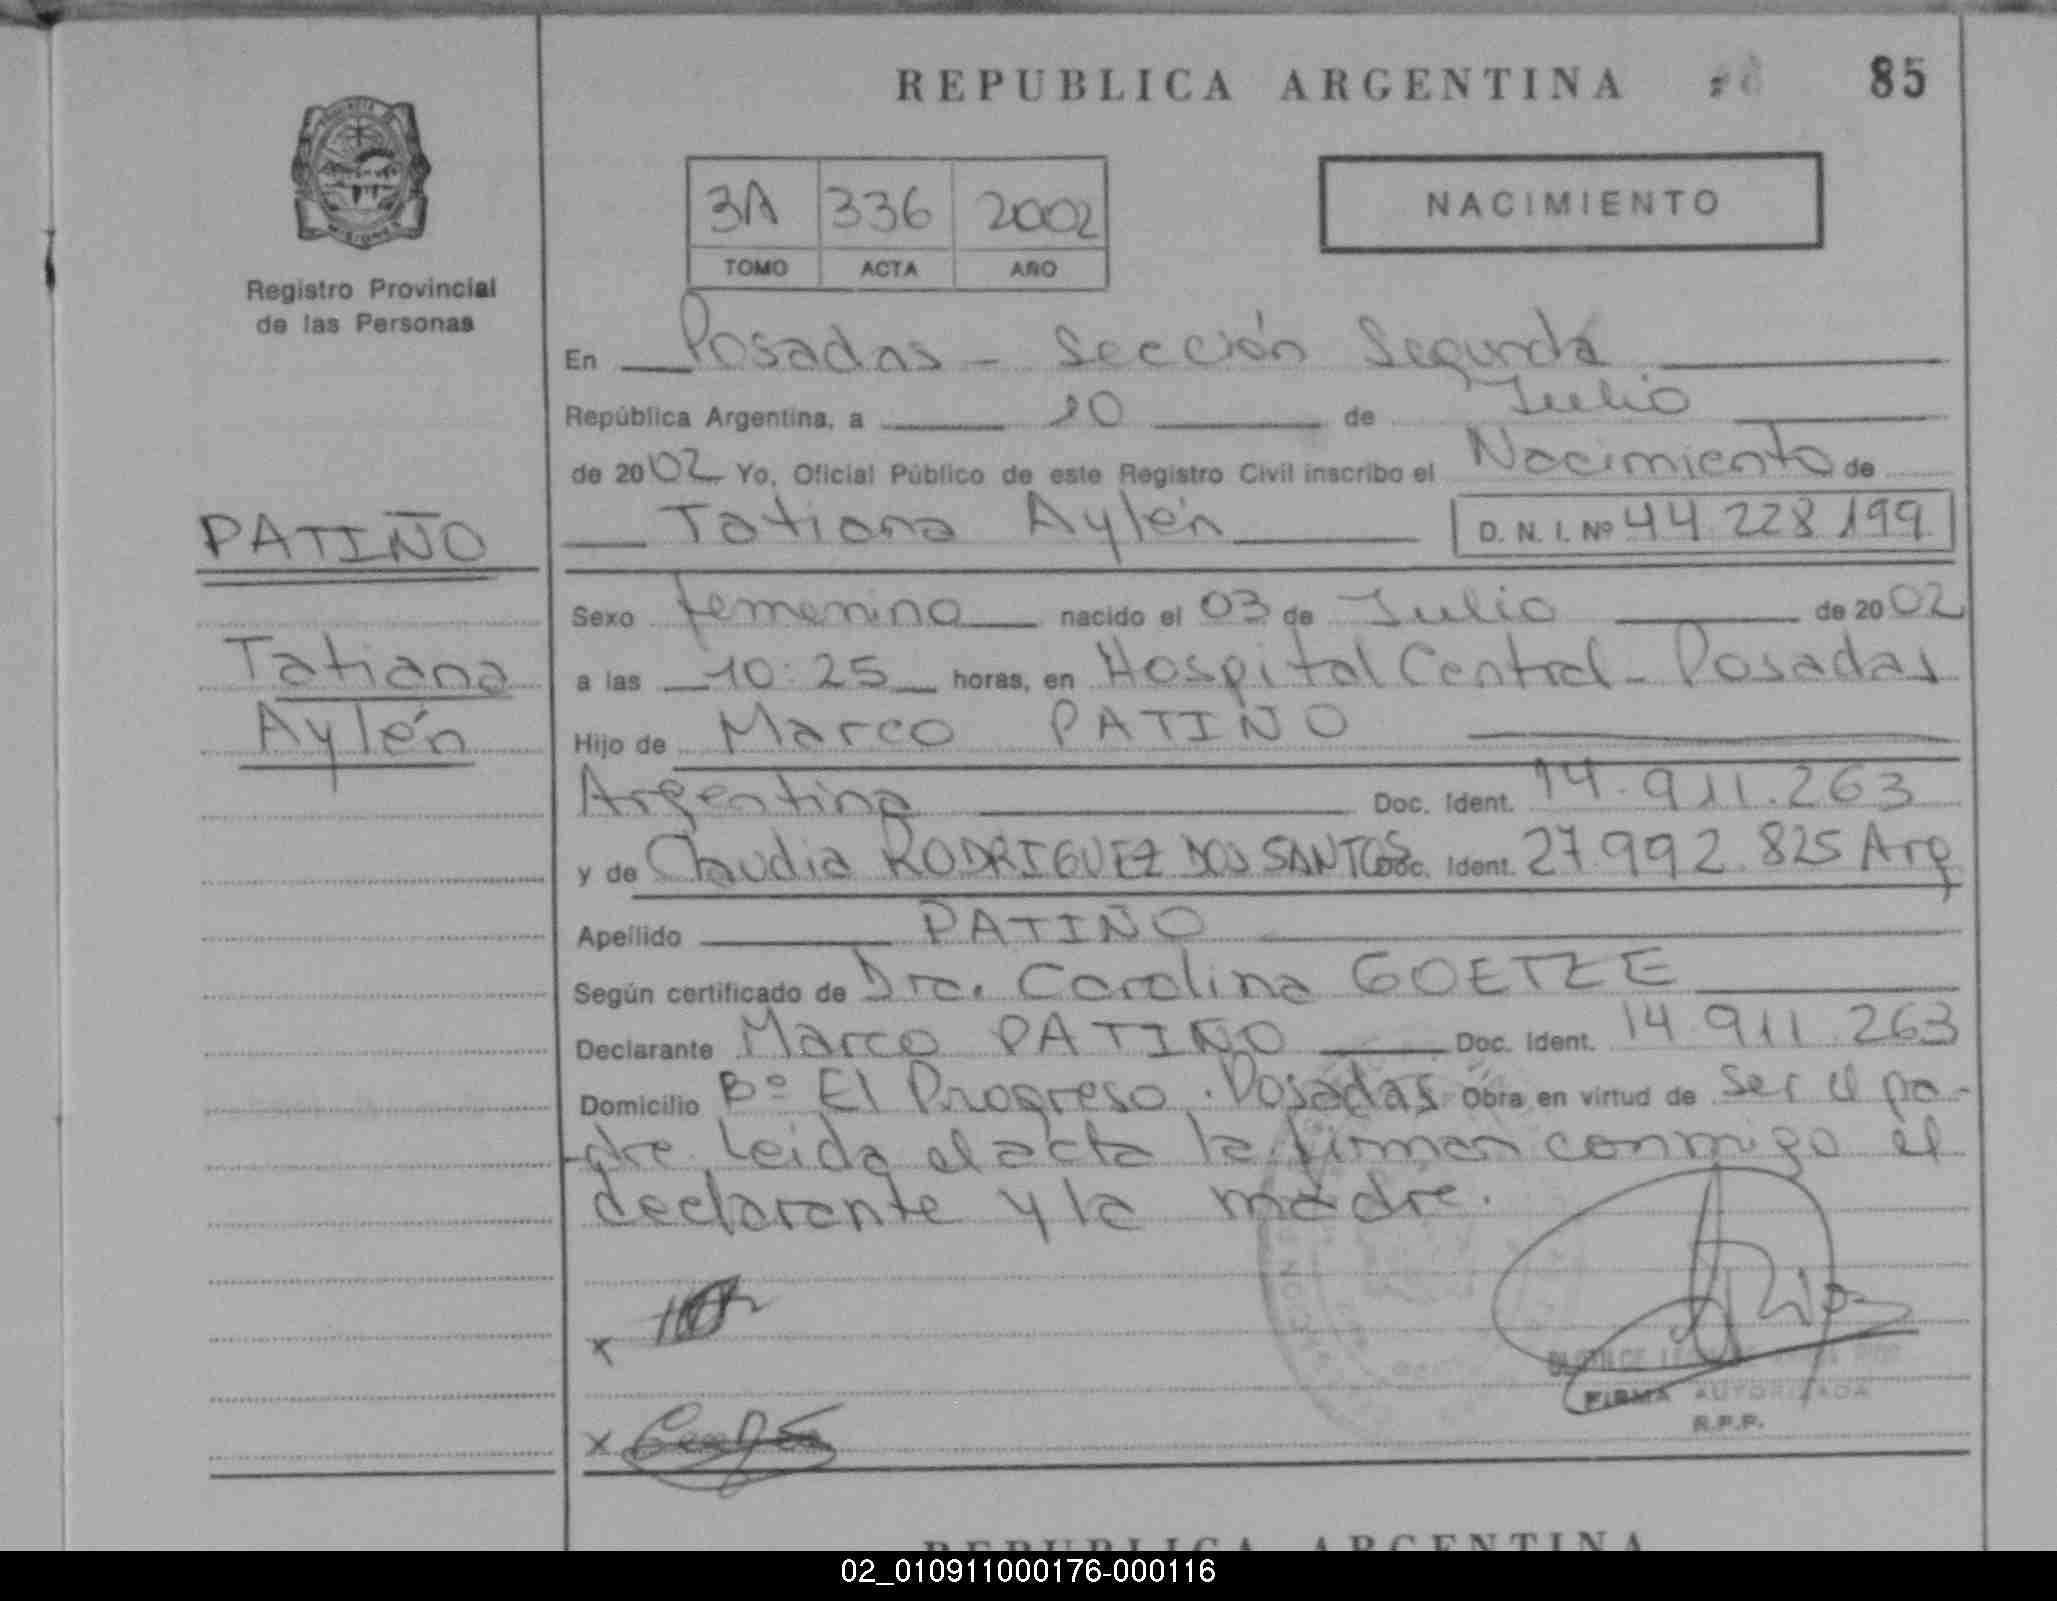 REPUBLICA ARGENTINA 85
PROVINCIA
MISIONES
Registro Provincial
de las Personas
3A 336 2002
TOMO ACTA AÑO
NACIMIENTO
En Posadas - Sección Segunda
República Argentina, a 10 de Julio
de 2002 Yo, Oficial Público de este Registro Civil inscribo el Nacimiento de
Tatiana Aylén D. N. I. Nº 44 228 199
PATIÑO
Tatiana
Aylén
Sexo femenino nacido el 03 de Julio de 2002
a las 10:25 horas, en Hospital Central - Posadas
Hijo de Marco PATIÑO
Argentina Doc. Ident. 14.911.263
y de Claudia RODRIGUEZ DOS SANTOS Doc. Ident. 27.992.825 Arg
Apellido PATIÑO
Según certificado de Dra. Carolina GOETZE
Declarante Marco PATIÑO Doc. Ident. 14.911.263
Domicilio Bº El Progreso. Posadas Obra en virtud de ser el pa-
-dre. Leida el acta la firman conmigo el
declarante y la madre.
x
x
FIRMA AUTORIZADA
R.P.P.
REPUBLICA ARGENTINA
02_010911000176-000116